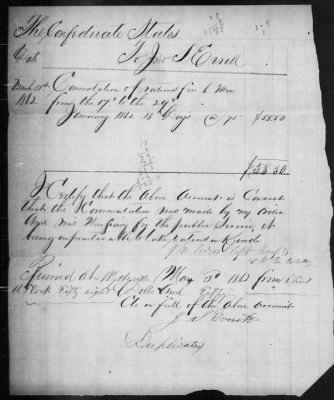 The Confederate States
To Jno S Ezzell
March 31st Commutation of rations for 6 Men
1862 from the 17th to the 29th
January 1862 13 Days @ 75 $58.50
$58.50
I Certify that the above Account is Correct
that the Commutation was made by my Order
And was Necessary for the public Service it
being impracticable to take rations in Kind
Received at May 5th 1862 from
Fifty eight Dollars and Fifty
Cts in full of the above account
Duplicates